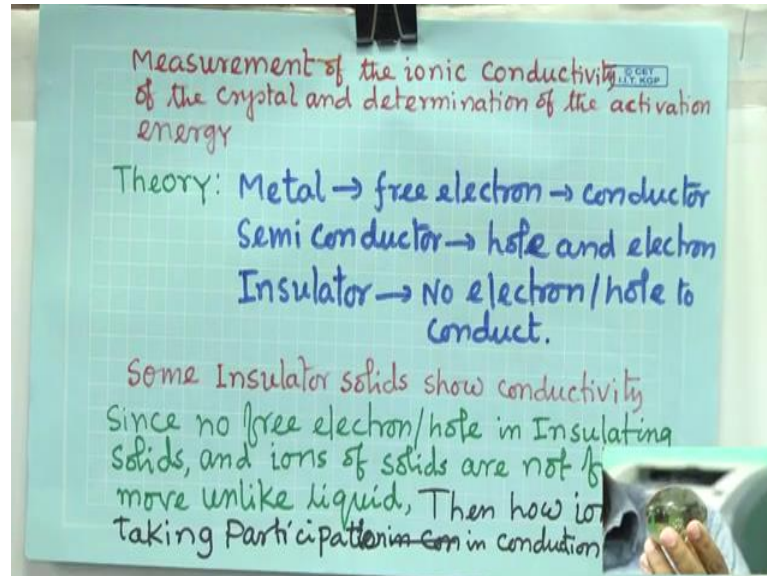 Measurement of the ionic conductivity
© CET
I.I.T. KGP
of the crystal and determination of the activation
energy
Theory: Metal → free electron → conductor
Semi conductor → hole and electron
Insulator → No electron/hole to
conduct.
Some Insulator solids show conductivity
Since no free electron/hole in Insulating
solids, and ions of solids are not
move unlike liquid, Then how
taking Participation in conduction